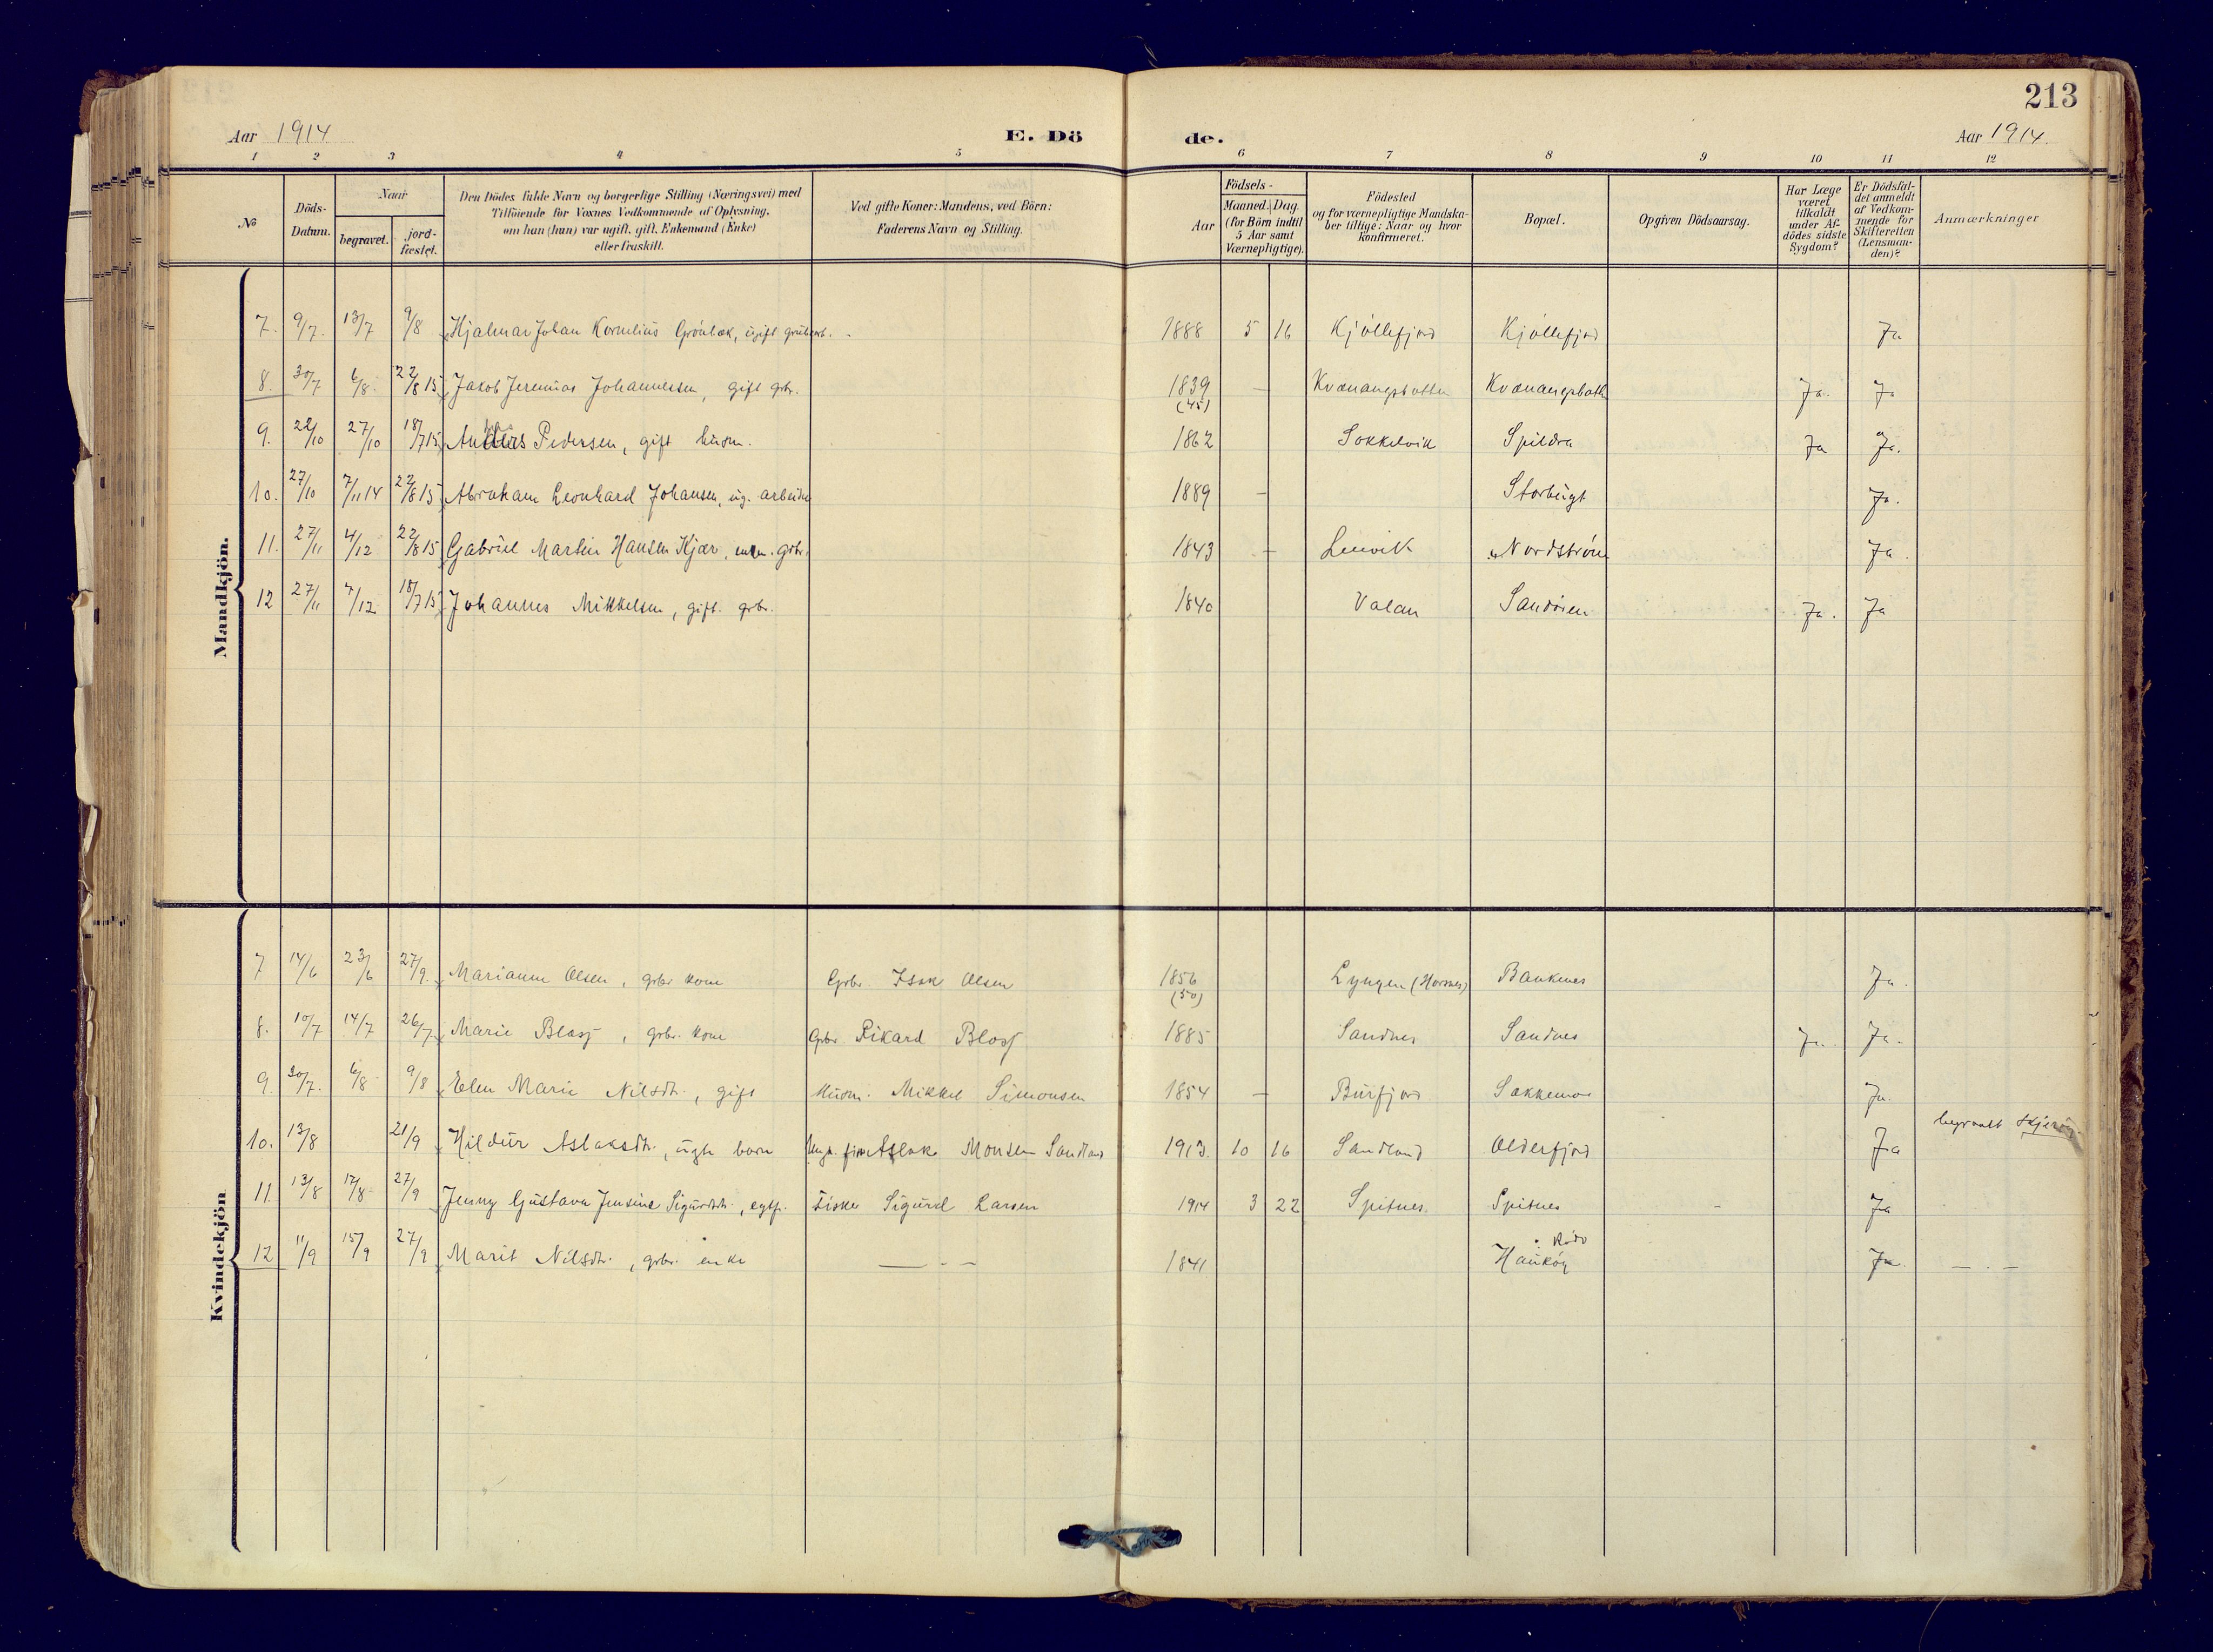 213
Aar 1914
E. Dö
de.
Aar 1914.
1 2 3 4 5 6 7 8 9 10 11 12
No
Döds-Datum.
Naar
begravet.
jord-fæstet.
Den Dödes fulde Navn og borgerlige Stilling (Næringsvei) med
Tilföiende for Voxnes Vedkommende af Oplysning,
om han (hun) var ugift, gift, Enkemand (Enke)
eller fraskilt.
Ved gifte Koner: Mandens, ved Börn:
Faderens Navn og Stilling.
Aar
Födsels-
Maaned. Dag.
(for Börn indtil
5 Aar samt
Værnepligtige).
Födested
og for værnepligtige Mandska-
ber tillige: Naar og hvor
konfirmeret.
Bopæl.
Opgiven Dödsaarsag.
Har Læge
været
tilkaldt
under Af-
dödes sidste
Sygdom?
Er Dödsfal-
det anmeldt
af Vedkom-
mende for
Skifteretten
(Lensman-
den)?
Anmærkninger
Mandkjön.
7. 9/7. 13/7 9/8 Hjalmar Johan Kornelius Grönbæk, ugift 1888 5 16 Kjöllefjord Kjöllefjord Ja
8. 30/7 6/8 22/8 15 Jakob Jeremias Johannessen, gift gbr. 1839 (45) – Kvænangsbotten Kvænangsbotn Ja. Ja
9. 22/10 27/10 18/7 15 Pedersen, gift husm. 1862 Sokkelvik Spildra Ja Ja.
10. 27/10 7/11 14 22/8 15 Abraham Leonhard Johansen, ug. arbeider 1889 – Storbugt Ja.
11. 27/11 4/12 22/8 15 Gabriel Martin Hansen Kjær, enkem. gbr. 1843 – Lenvik Nordström Ja.
12 27/11 4/12 18/7 15 Johannes Mikkelsen, gift. gbr. 1840 Valan Sandören Ja. Ja
Kvindekjön.
7 14/6 23/6 27/9. Marianne Olsen, gbr kone Gbr. Isak Olsen 1856 (50) Lyngen (Horsnes) Bankenes Ja.
8. 10/7 14/7 26/7 Marie Blasj, gbr. kone Gbr. Rikard Blosj 1885 Sandnes Sandnes Ja. Ja.
9. 30/7. 6/8 9/8 Elen Marie Nilsdtr., gift Husm. Mikkel Simonsen 1854 – Burfjord Sakkemo Ja.
10. 13/8 21/9 Hildur Aslaksdtr., barn Aslak Monsen Sandland 1913. 10 16 Sandland Olderfjord Ja begravet Skjervøy.
11 13/8 17/8 27/9 Jenny Gustava Jensine Sigurdsdtr., egtf. Fisker Sigurd Larsen 1914 3 22 Spitnes. Spitnes Ja
12 11/9 15/9 27/9 Marit Nilsdtr., gbr. enke — - — 1841 Rödö
Hauköy Ja. — . —